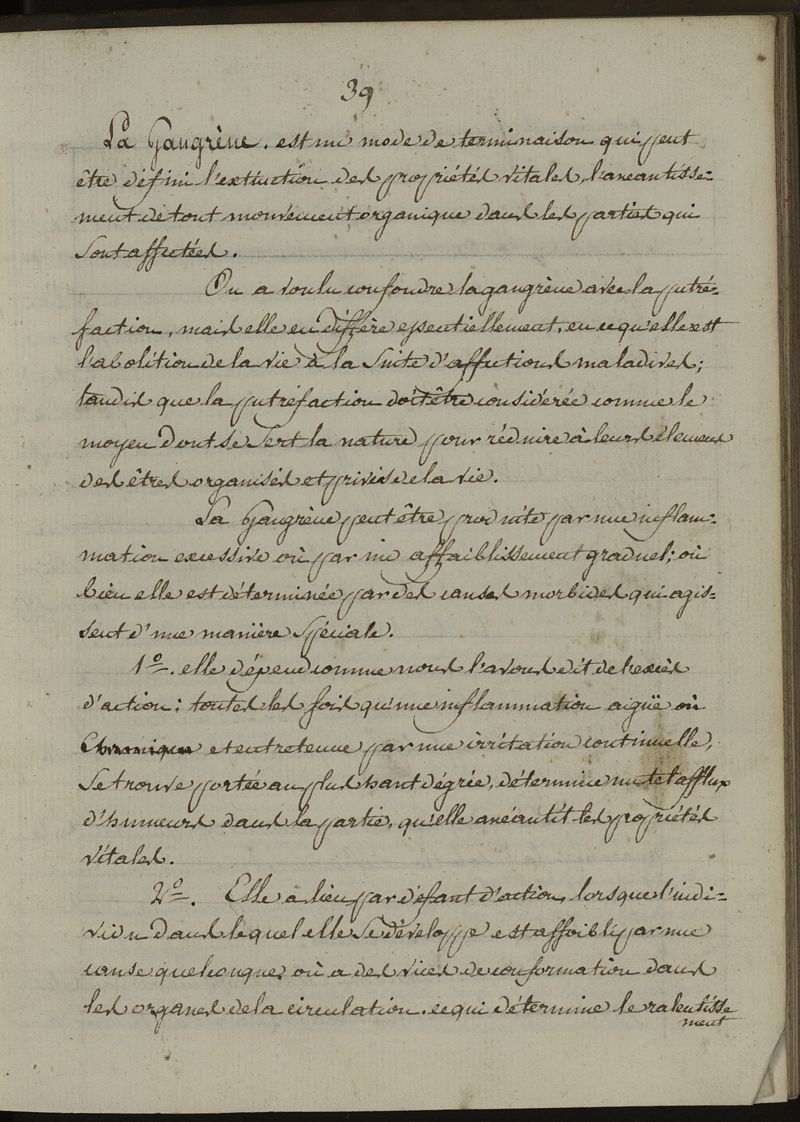 39
La Gangrène. est un mode de terminaison qui peut
être défini l'extinction des propriétés vitales, l'aneantisse=
ment de tout mouvement organique dans les parties qui
sont affectées.
On a voulu confondre la gangrène avec la putré=
faction, mais elle en diffère essentiellement, en ce qu'elle est
l'abolition de la vie à la suite d'affections maladives;
tandis que la putréfaction doit être considérée comme le
moyen dont se sert la nature pour réduire à leurs élemens
des êtres organisés et privés de la vie.
La Gangrène peut être produite par une inflam=
mation excessive où par un affaiblissement graduel; où
bien elle est déterminée par des causes morbides qui agis=
sent d'une manière spéciale.
1º. elle dépend comme nous l'avons dit de l'excès
d'action: toutes les fois qu'une inflammation aigüe où
Chronique et entretenue par une irritation continuelle,
se trouve portée au plus haut dégrée, détermine un tel afflux
d'humeurs dans la partie, qu'elle anéantit les propriétés
vitales.
2º. Elle a lieu par défaut d'action, lorsque l'indi=
vidu dans lequel elle se développe est affoibli par une
cause quelconque, où a des vices de conformation dans
les organes de la circulation. ce qui détermine le ralentisse
ment